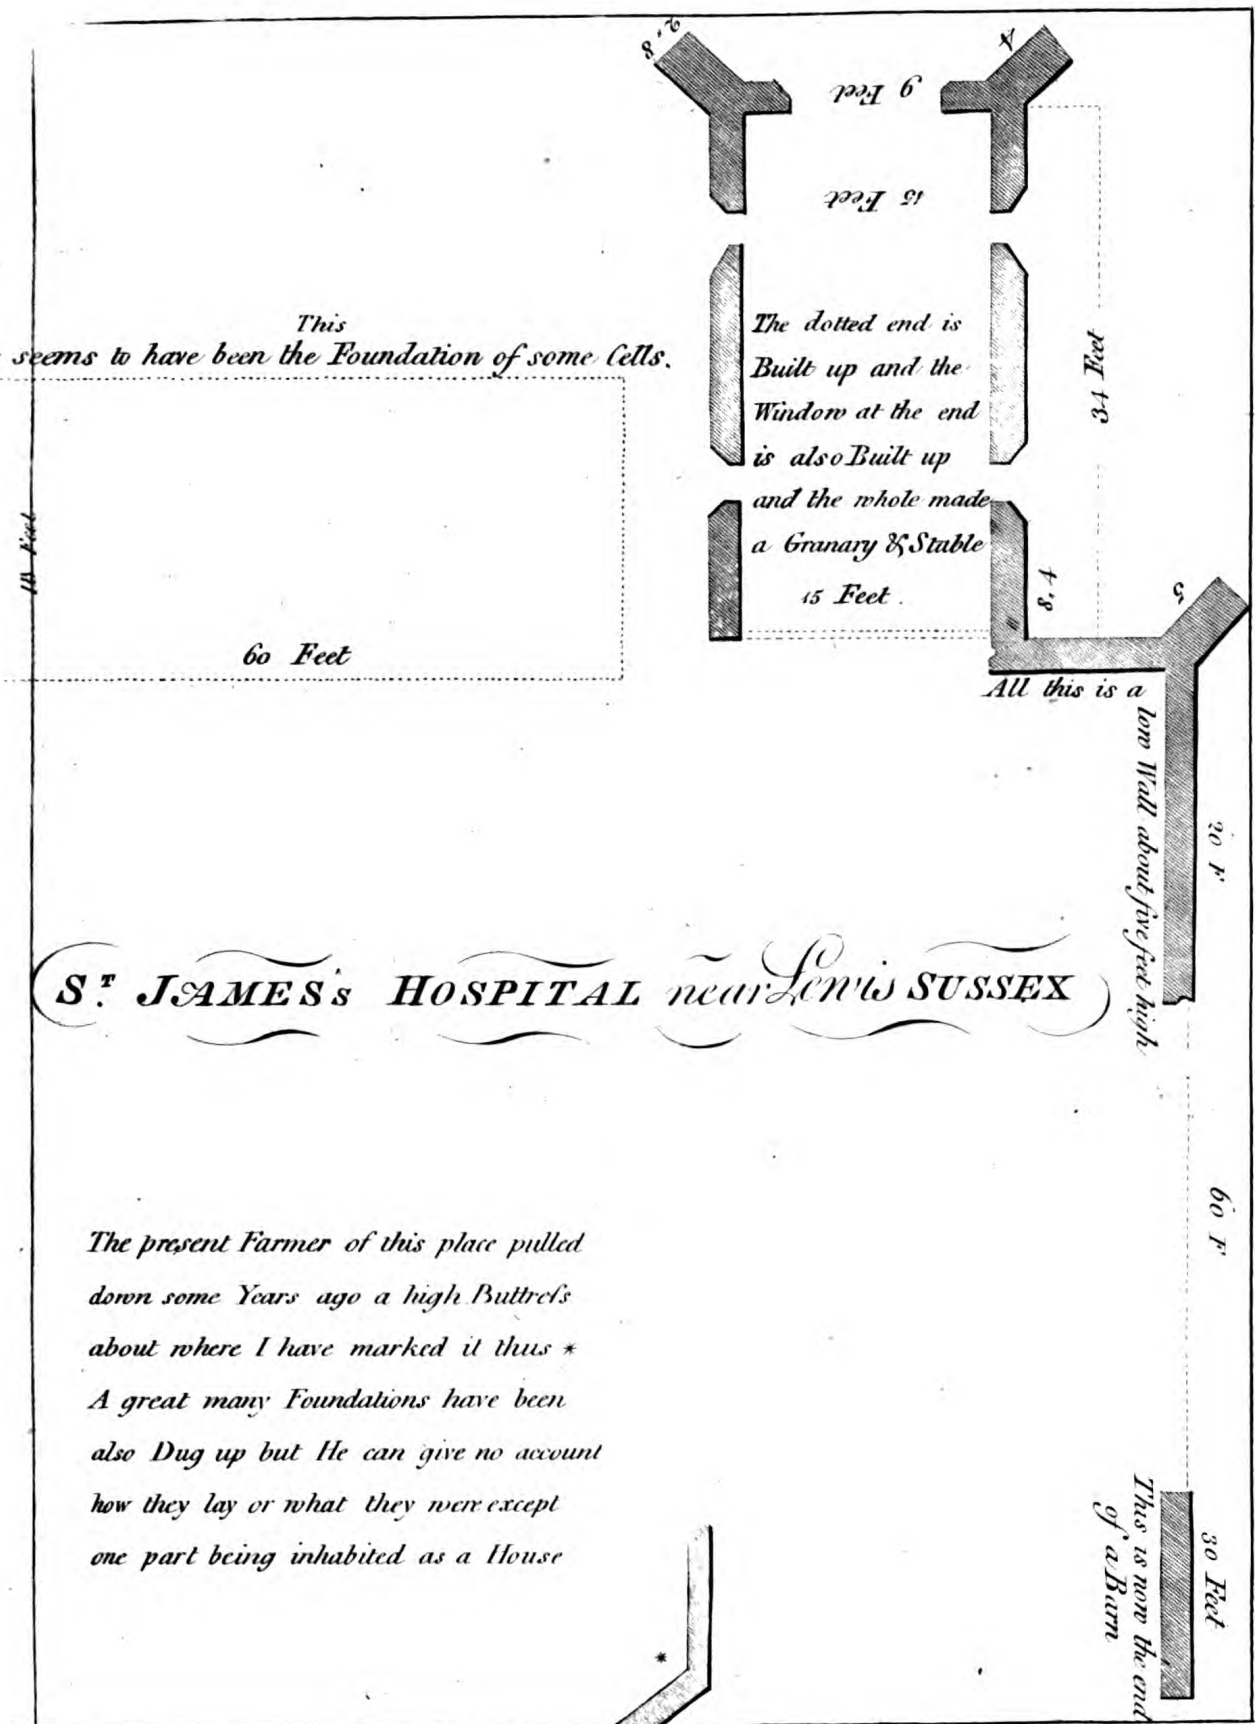 2.8
4
9 Feet
15 Feet
This
seems to have been the Foundation of some Cells.
The dotted end is
Built up and the
Window at the end
is also Built up
and the whole made
a Granary & Stable
15 Feet.
34 Feet
Feet
60 Feet
8.4
5
All this is a
low Wall about five feet high
20 F
ST. JAMES's HOSPITAL near Lewis SUSSEX
60 F
The present Farmer of this place pulled
down some Years ago a high Buttreſs
about where I have marked it thus *
A great many Foundations have been
also Dug up but He can give no account
how they lay or what they were except
one part being inhabited as a House
This is now the end
of a Barn
30 Feet
*